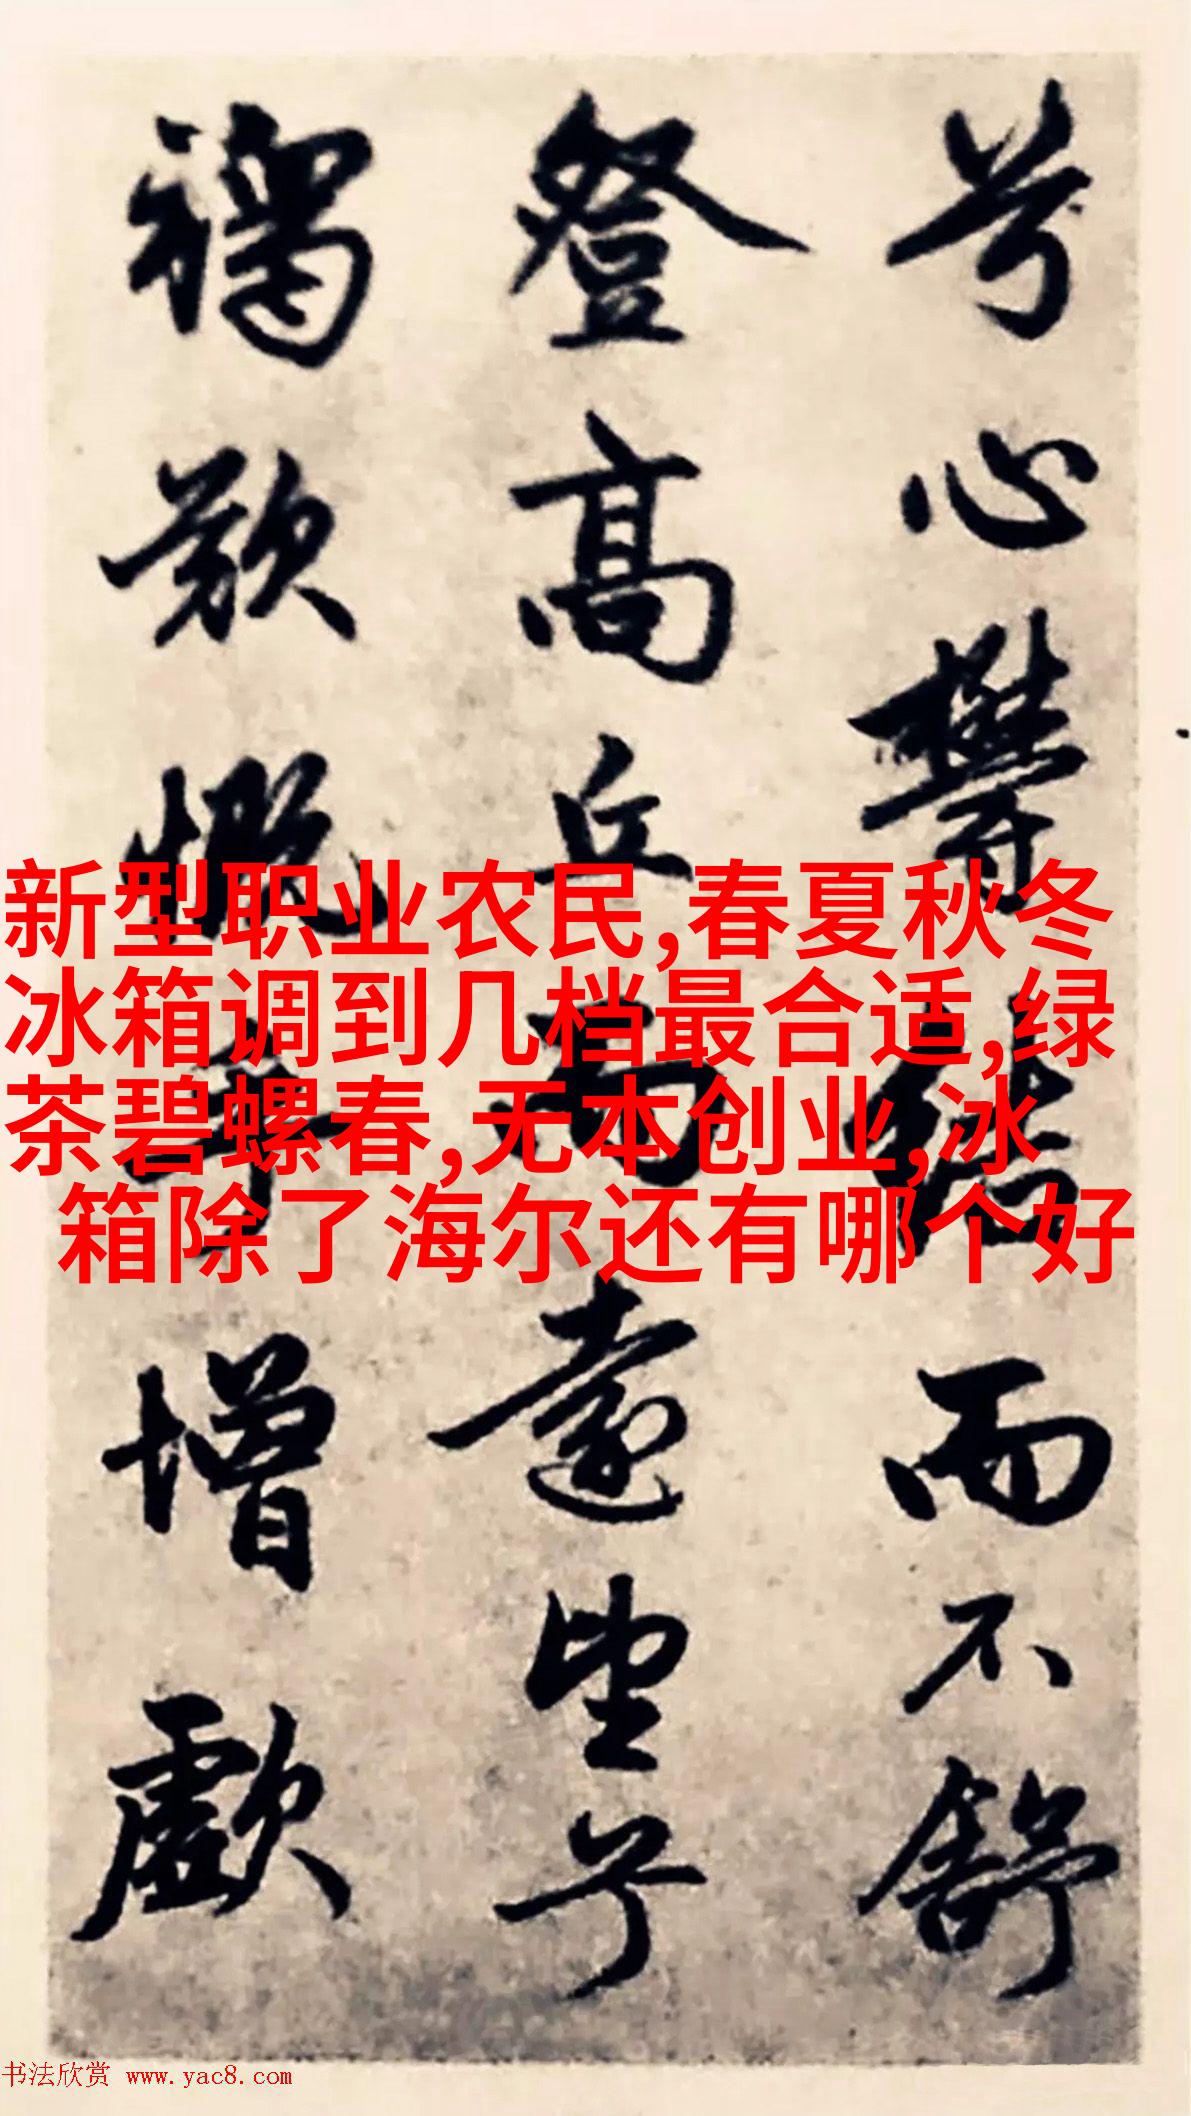 兮心欝結而不舒
登高丘而遠望兮
慨增歔
新型职业农民,春夏秋冬
冰箱调到几档最合适,绿
茶碧螺春,无本创业,冰
箱除了海尔还有哪个好
书法欣赏 www.yac8.com